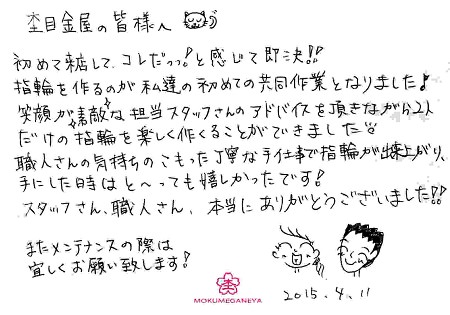 杢目金屋の皆様へ
初めて来店して、コレだっっ!と感じて即決!!
指輪を作るのが私達の初めての共同作業となりました♪
笑顔が素敵な担当スタッフさんのアドバイスを頂きながら2人
だけの指輪を楽しく作くることができました
職人さんの気持ちのこもった丁寧な手仕事で指輪が出来上がり、
手にした時はと〜っても嬉しかったです!
スタッフさん、職人さん、本当にありがとうございました!!
またメンテナンスの際は
宜しくお願い致します!
杢
MOKUMEGANEYA
2015.4.11